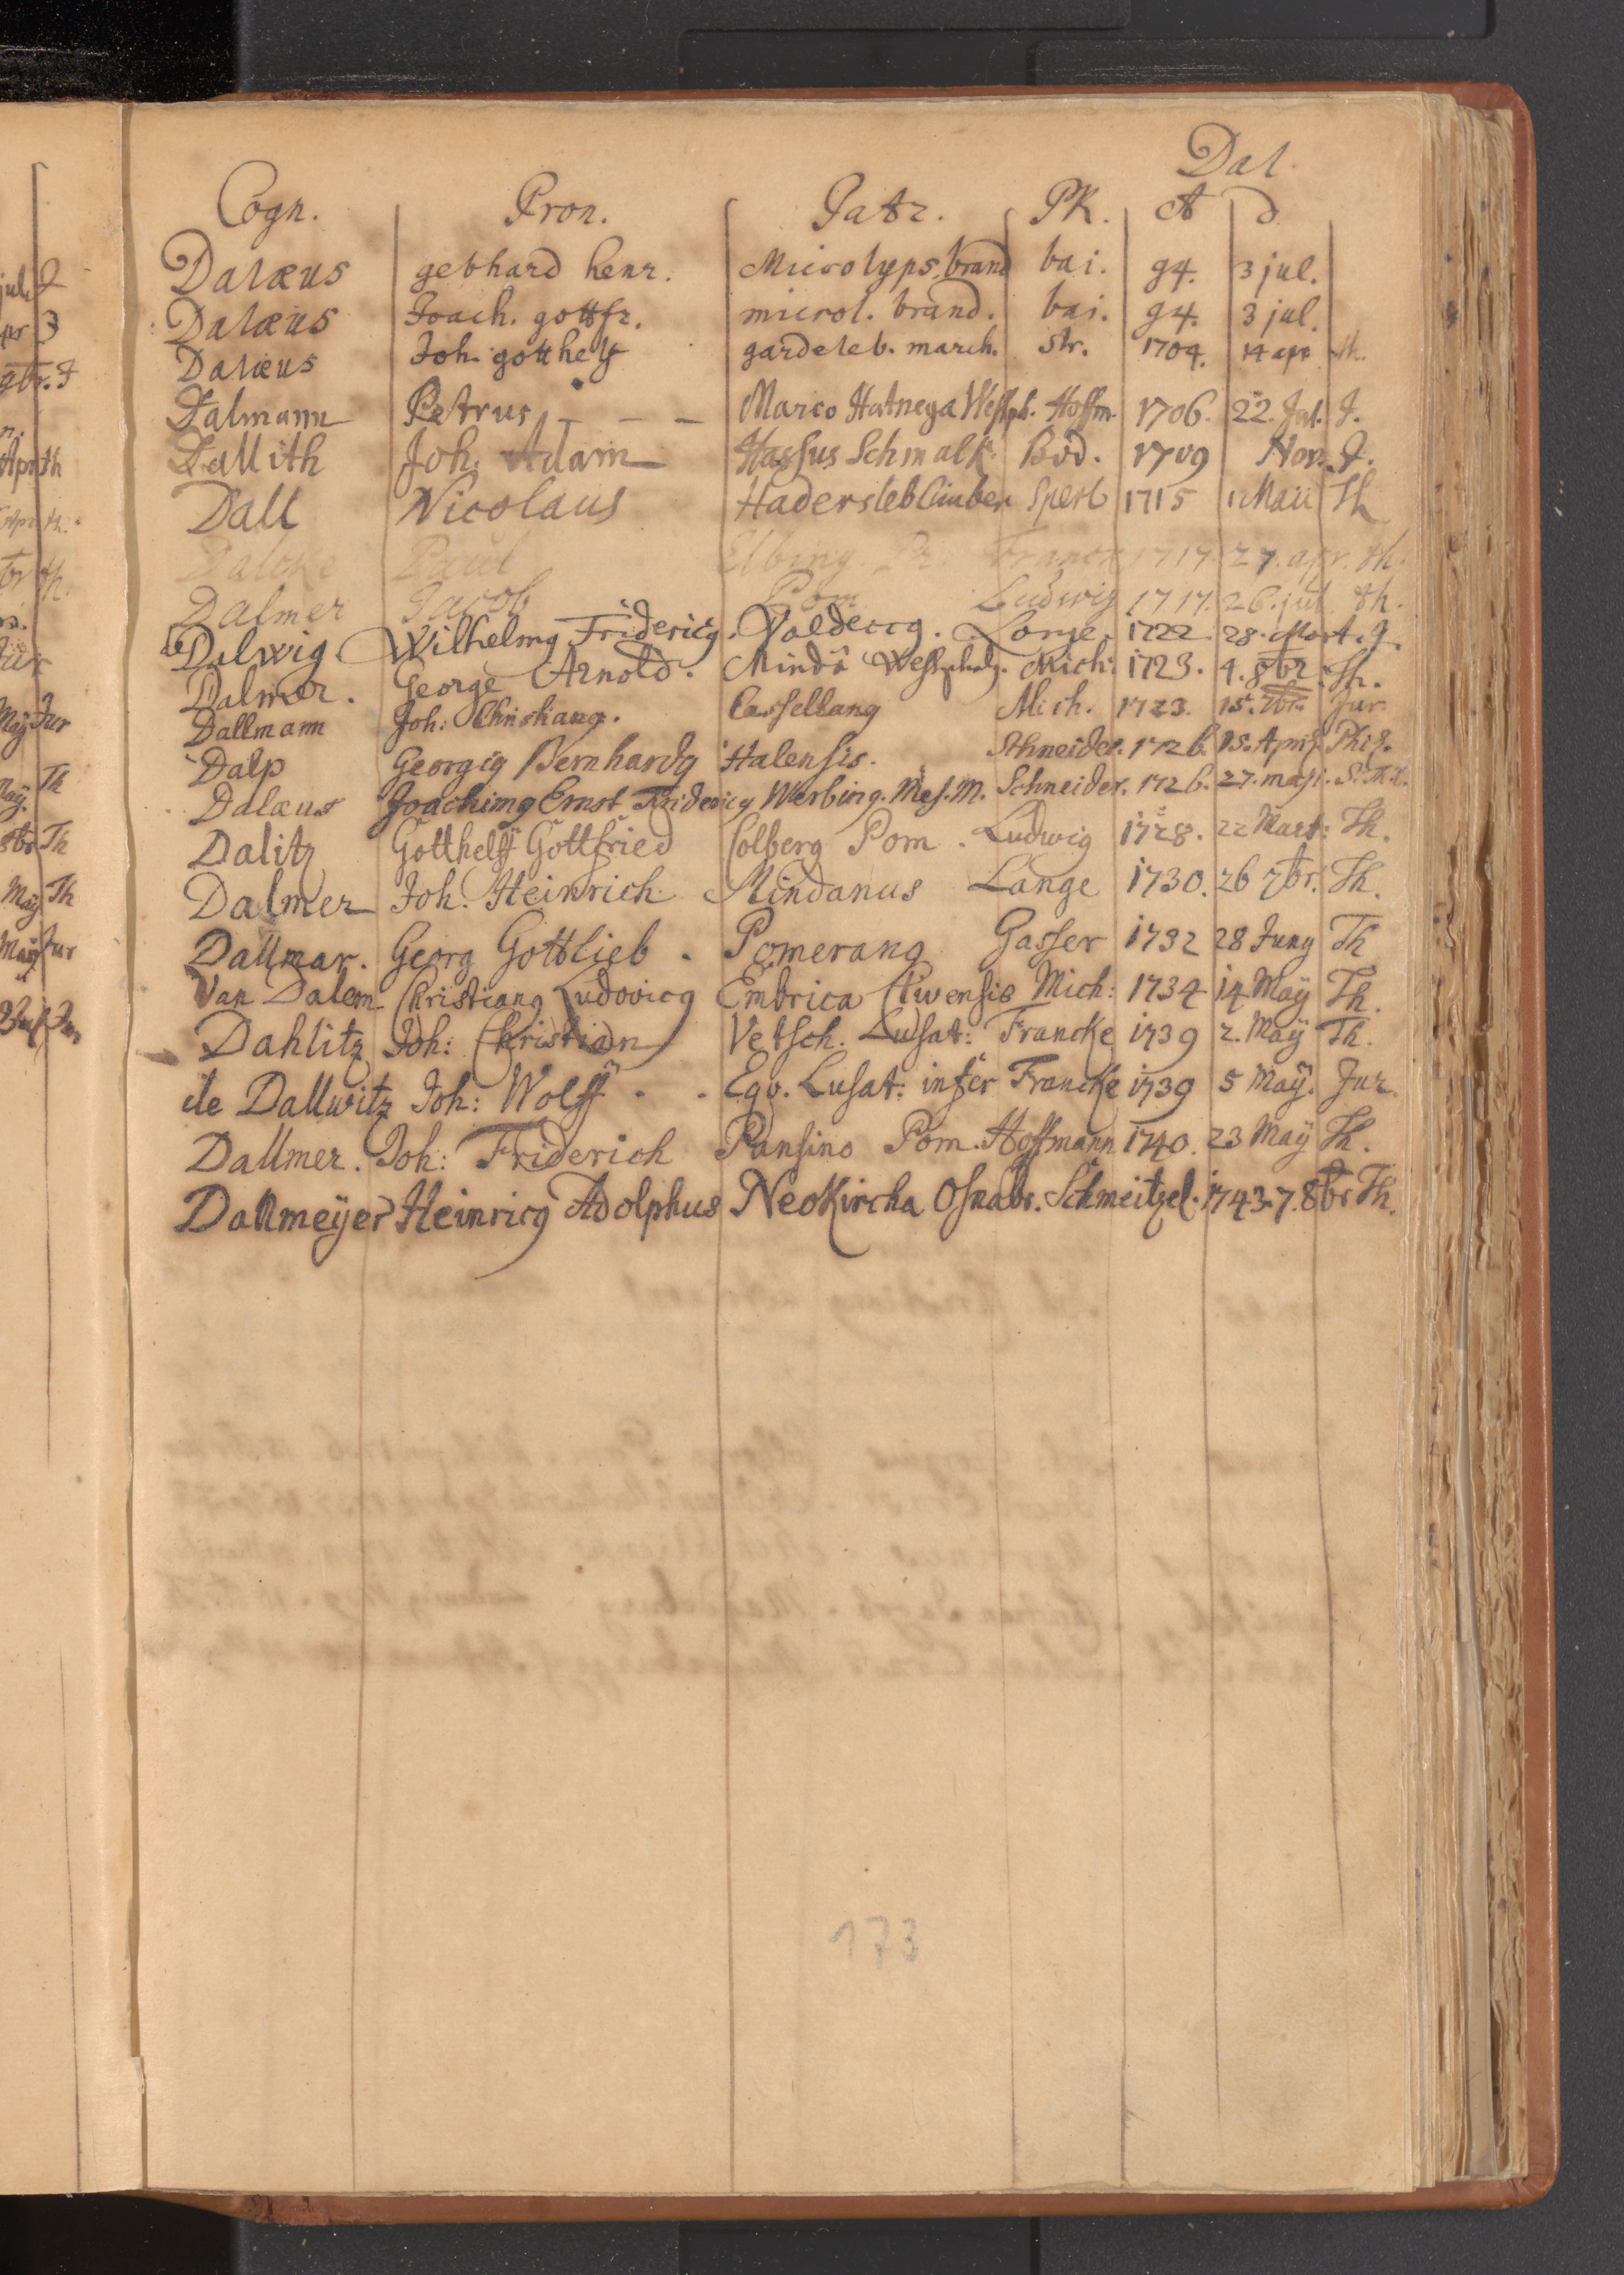 Dal.
Cogn. Pron. Patr. PR. A d
Dalæus gebhard henr. Microlyps. brand bai. 94. 3 jul.
Dalæus Joach. gottfr. microl. brand. bai. 94. 3 jul.
Dalæus Joh. gotthelf gardeleb. march. str. 1704. 14 apr th.
Dalmann Petrus _ _ _ Marco Hatnega Westph. Hoffm. 1706. 22. Jul. J.
Dallith Joh. Adam Hassus Schmalk. Bod. 1709 Nov. J.
Dall Nicolaus Hadersleb Cimber Sperl 1715 1 Maii Th
Dalcke Paul Elbing. Pr. Franck 1717. 27. apr. th.
Dalmer Jacob Pom Ludwig 1717. 26. jul. th.
de Dalwig Wilhelmg Fridericg. Valdeccg. Lange. 1722. 28. Mart. J.
Dalmer. George Arnold. Mindâ Westphalg. Mich: 1723. 4. 8br. Th.
Dallmann Joh: Christiang. Cassellang Mich. 1723. 15. Jur.
Dalp Georgig Bernhardg Halensis. Schneider. 1726. 15. April. Phil.
Dalæus Joachimg Ernst Fridericg Werbing. Mes. M. Schneider. 1726. 27. maji. S. Th.
Dalitz Gotthelff Gottfried Colberg Pom. Ludwig 1728. 22 Mart: Th.
Dalmer Joh. Heinrich Mindanus Lange 1730. 26 7br. Th.
Dallmar. Georg Gottlieb. Pomerang Gasser 1732 28 Jung Th
Van Dalem Christiang Ludovicg Embrica Clivensis Mich: 1734 14 Maÿ Th.
Dahlitz Joh: Christian Vetsch. Lusat: Francke 1739 2. Maÿ Th.
de Dallwitz Joh: Wolff. . Eqv. Lusat: infer Francke 1739 5 Maÿ. Jur.
Dallmer. Joh: Friderich Pansino Pom. Hoffmann 1740. 23 Maÿ Th.
Dallmeÿer Heinricg Adolphus NeoKircha Osnabr. Schmeitzel. 1743. 7. 8br Th.
173